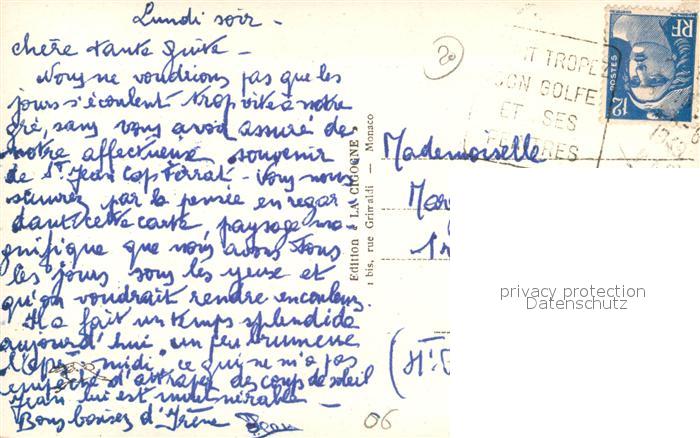 Lundi soir -
chère tante Guite -
Nous ne voudrions pas que les
jours s'écoulent trop vite à notre
gré, sans vous avoir assuré de
notre affectueux souvenir
de St Jean Cap Ferrat - Vous nous
suivrez par la pensée en regar-
dant cette carte, paysage ma-
gnifique que nous avons tous
les jours sous les yeux et
qu'on voudrait rendre en couleurs.
Il a fait un temps splendide
aujourd'hui, un peu brumeux
l'après midi, ce qui ne m'a pas
empêché d'attraper des coups de soleil
Jean lui est invulnérable -
Bons baisers d'Irène Jean
20
T TROPEZ
SON GOLFE
ET SES
PEINTRES
RF
POSTES
12
Edition " LA CIGOGNE "
1 bis, rue Grimaldi - Monaco
Mademoiselle
Mar
1
(Ht
06
privacy protection
Datenschutz